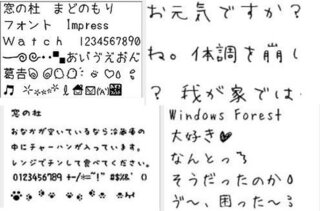 窓の杜 まどのもり
フォント Impress
Watch 1234567890
おいうえおん
葛
お元気ですか？
ね。体調を崩し
？ 我が家では
窓の杜
おなかが空いているなら冷蔵庫の
中にチャーハンが入っています。
レンジでチンして食べてください。
0123456789 +-/*=~"!" #$%&'()
Windows Forest
大好き♥
なんとっ
そうだったのか
う゛～、困った～